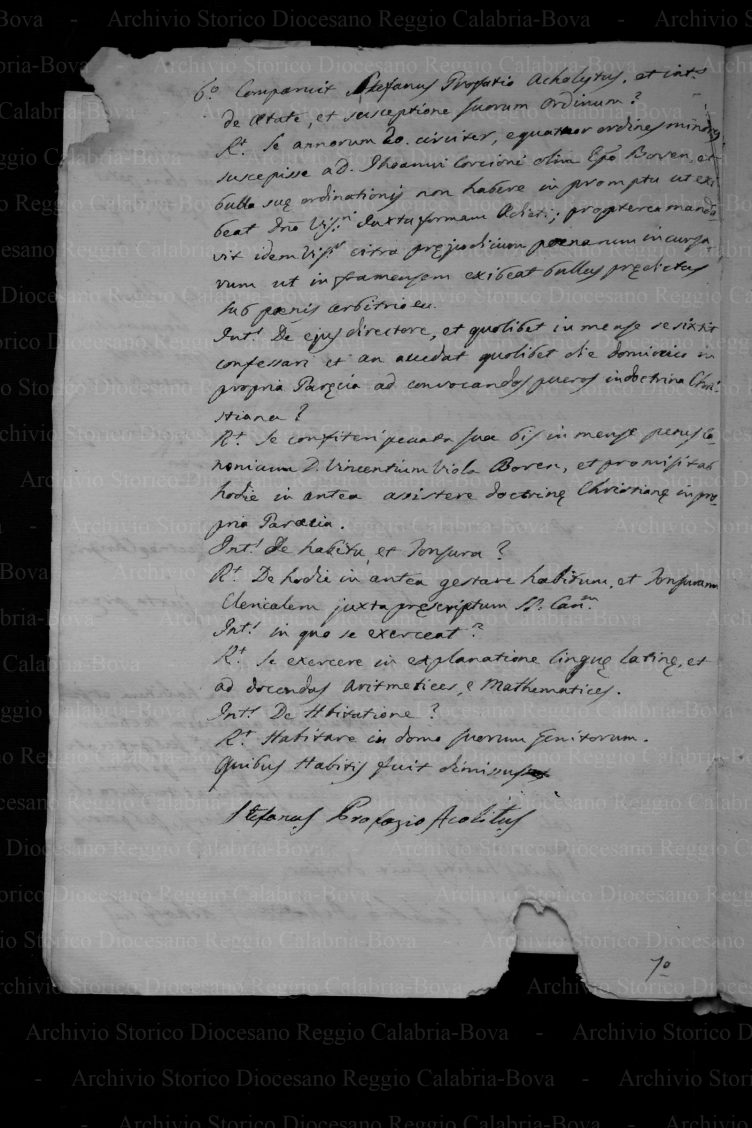 6.º Comparuit Stefanus Profatio Acholytus, et int.s
de ætate, et susceptione suorum ordinum?
R.t Se annorum 20. circiter, equatuor ordines minores
suscepisse ad. Jhoanni Corcioni olim Epo Boven, et
bulla suę ordinationis non habere in promptu ut exi
beat Dno Vis.ri Juxta formam Adicti; propterea manda
vit idem Vis.r citra pręjudicium pænarum incursa
rum ut infra mensem exibeat bullas prędictas
sub pænis arbitrio eu.
Int.s De ejus directore, et quolibet in mense se sixtit
confessari et an accedat quolibet die dominico in
propria Paręcia ad convocandos pueros in doctrina Chri
stiana?
R.t Se confiteri peccata sua bis in mense penes Ca
nonicum D. Vincentium Viola Boven, et promisit ab
hodie in antea assistere doctrinę Christianę in pro
pria Paræcia.
Int.s De habitu, et Tonsura?
R.t De hodie in antea gestare habitum, et Tonsuram
Clericalem juxta pręscriptum SS. Can.m
Int.s in quo se exerceat?
R.t Se exercere in explanatione linguę latinę, et
ad docendas Aritmetices, e Mathematices.
Int.s De Hbitatione?
R.t Habitare in domo suorum Genitorum.
Quibus Habitis fuit dimissus
Stefanus Profazio Acolitus
7º
Archivio Storico Diocesano Reggio Calabria-Bova - Archivio Storico Diocesano Reggio Calabria-Bova